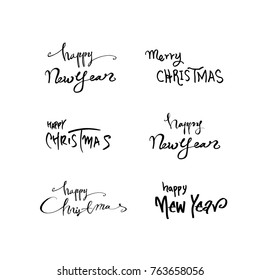 happy
New Year
Merry
CHRISTMAS
HAPPY
CHRISTMAS
happy
New Year
happy
Christmas
happy
New Year
shutterstock.com · 763658056